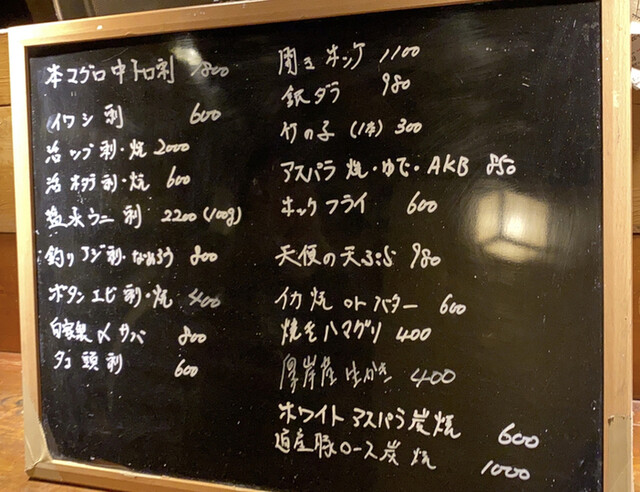 本マグロ中トロ刺 1800
イワシ刺 600
活ツブ刺・焼 2000
活ホタテ刺・焼 600
塩水ウニ刺 2200(100g)
釣りアジ刺・なめろう 800
ボタンエビ刺・焼 400
自家製〆サバ 800
タコ頭刺 600
開きホッケ 1100
銀ダラ 980
竹の子(1本) 300
アスパラ焼・ゆで・AKB 850
ホッケフライ 600
天使の天ぷら 980
イカ焼 or バター 600
焼きハマグリ 400
厚岸産生かき 400
ホワイトアスパラ炭焼 600
道産豚ロース炭焼 1000